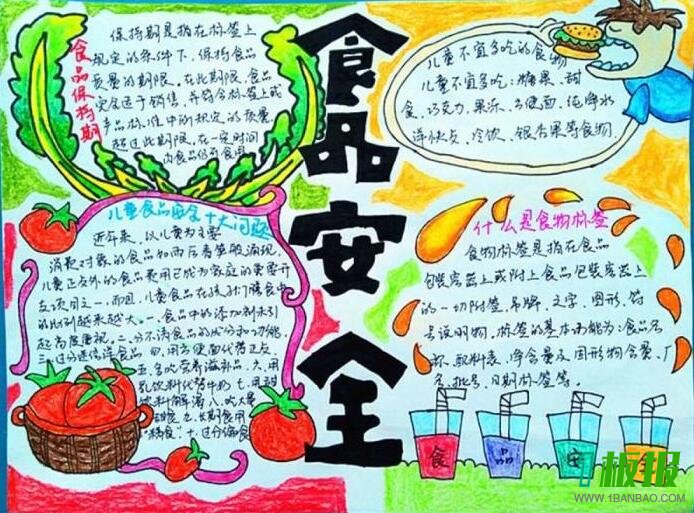 食品安全
食品保持期
保持期是指在标签上
规定的条件下，保持食品
质量的期限。在此期限，食品
完全适于销售，并符合标签上或
产品标准中所规定的质量。
超过此期限，在一定时间
内食品仍可食用
儿童不宜多吃的食物
儿童不宜多吃：糖果、甜
食、巧克力、果冻、方便面、纯净水
洋快餐、冷饮、银杏果等食物
儿童食品安全十大问题
近年来，以儿童为主要
消费对象的食品如雨后春笋般涌现，
儿童正以外的食品费用已成为家庭的重要开
支项目之一，而且，儿童食品在孩子们膳食中
的比例越来越大。一、食品中的添加剂未引
起高度重视。二、分不清食品的成分和功能、
三、过分迷信洋食品 四、用方便面代替正
五、多吃营养滋补品。六、用
乳饮料代替牛奶 七、用甜
饮料解渴 八、吃大量
甜食 九、长期食用
"精食" 十、过分偏食
什么是食物标签
食物标签是指在食品
包装容器上或附上食品包装容器上
的一切附签、吊牌、文字、图形、符
号说明物。标签的基本功能为：食品名
称、配料表、净含量及固形物含量、厂
名、批号、日期标签等。
食 品 安 全
板报
WWW.1BANBAO.COM